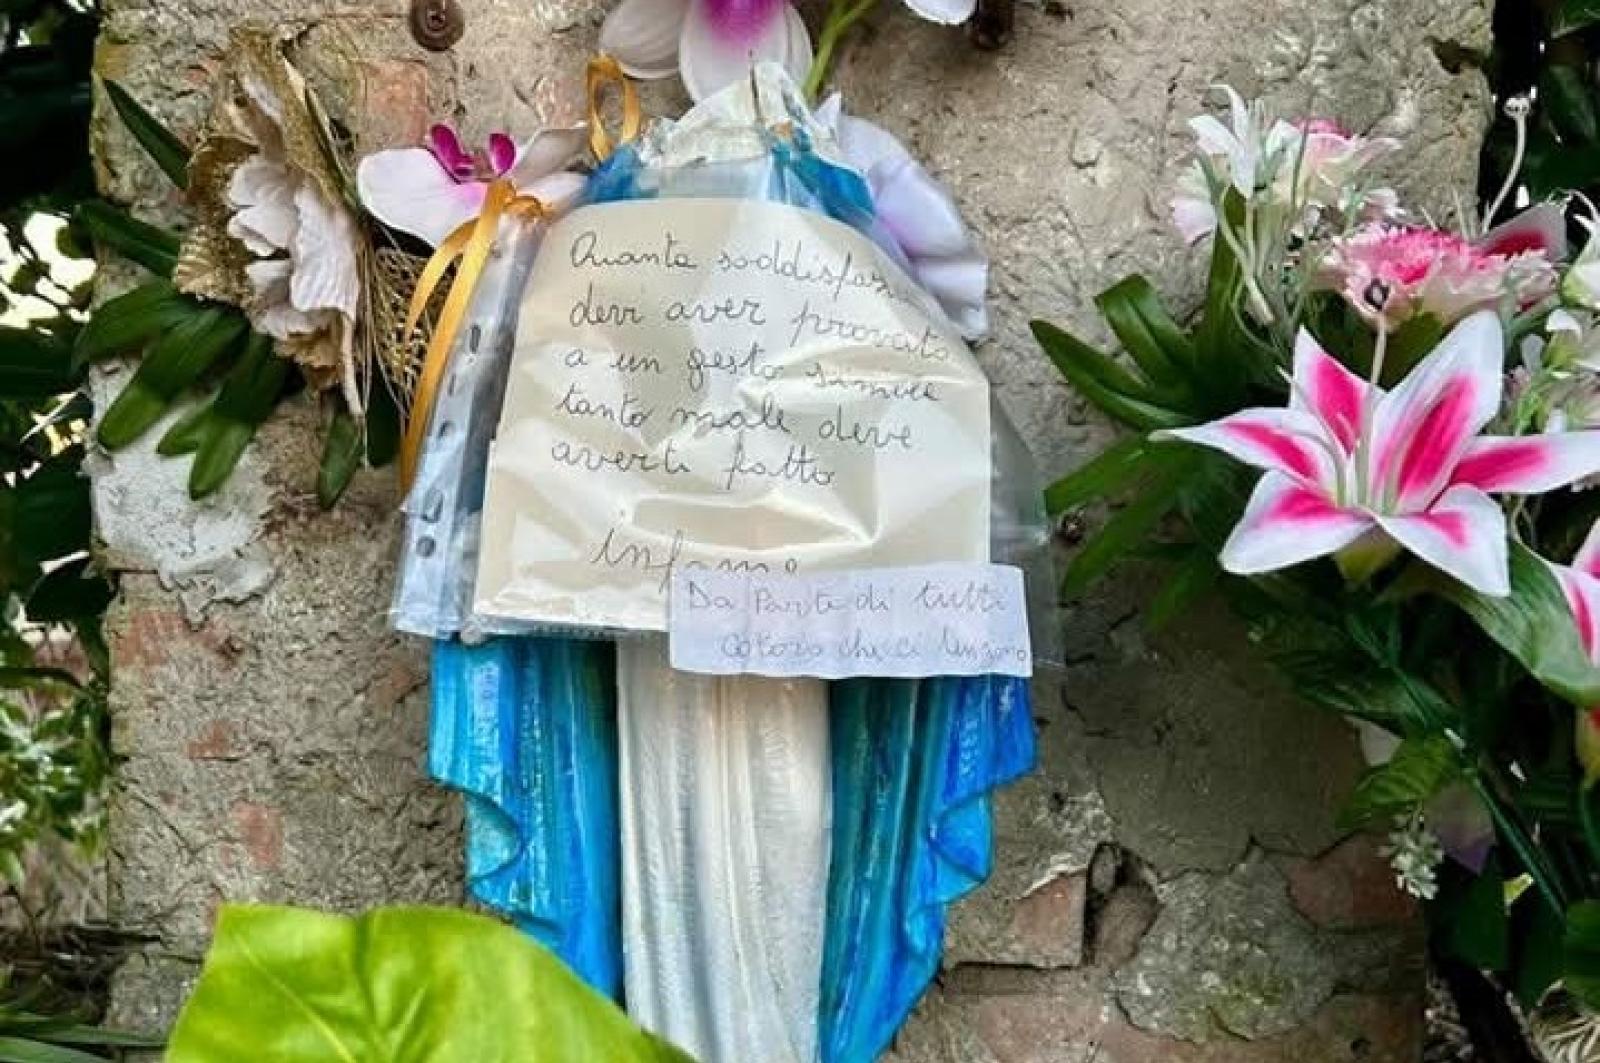 Quanta soddisfaz
devi aver provato
a un gesto simile
tanto male deve
averti fatto
infame
Da Parte di tutti
coloro che ci tengono